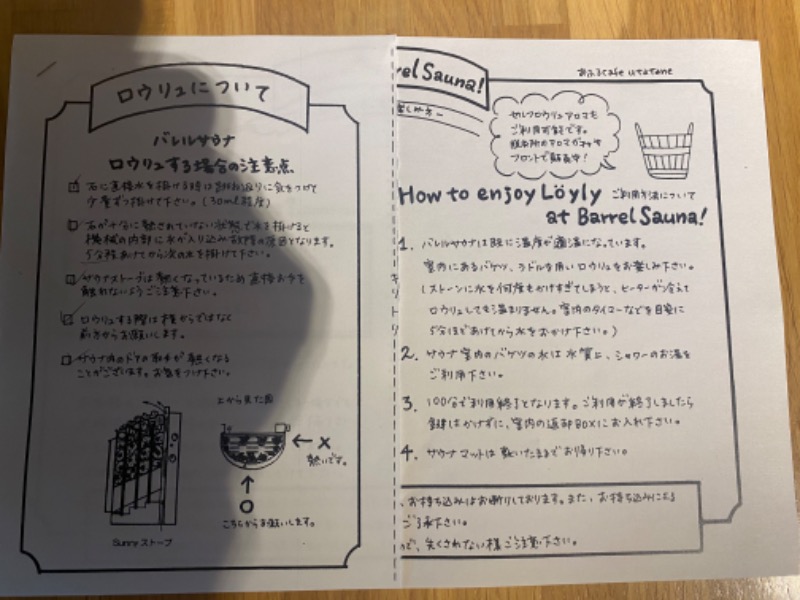 ロウリュについて
バレルサウナ
ロウリュする場合の注意点
石に直接水を掛ける時は跳ね返りに気をつけて
少量ずつ掛けて下さい。(30ml程度)
石が十分に熱されていない状態で水を掛けると
機械の内部に水が入り込み故障の原因となります。
5分程あけてから次の水を掛けて下さい。
サウナストーブは熱くなっているため直接お手を
触れないようご注意下さい。
ロウリュする際は横からではなく
前方からお願いします。
サウナ内のドアの取手が熱くなる
ことがございます。お気をつけ下さい。
上から見た図
← ×
熱いです。
↑
○
こちらからお願いします。
Sunnyストーブ
rel Sauna!
楽しみ方
おふろcafe utatane
セルフロウリュアロマも
ご利用可能です。
フロントで販売中!
How to enjoy Löyly ご利用方法について
at Barrel Sauna!
キリトリ
1. バレルサウナは既に温度が適温になっています。
室内にあるバケツ、ラドルを用いロウリュをお楽しみ下さい。
(ストーンに水を何度もかけすぎてしまうと、ヒーターが冷えて
ロウリュしても温まりません。室内のタイマーなどを目安に
5分ほどあけてから水をおかけ下さい。)
2. サウナ室内のバケツの水は水質上、シャワーのお湯を
ご利用下さい。
3. 100分で利用終了となります。ご利用が終了しましたら
鍵はかけずに、室内の返却BOXにお入れ下さい。
4. サウナマットは敷いたままでお帰り下さい。
、お持ち込みはお断りしております。また、お持ち込みによる
ご了承下さい。
で、失くされない様ご注意下さい。